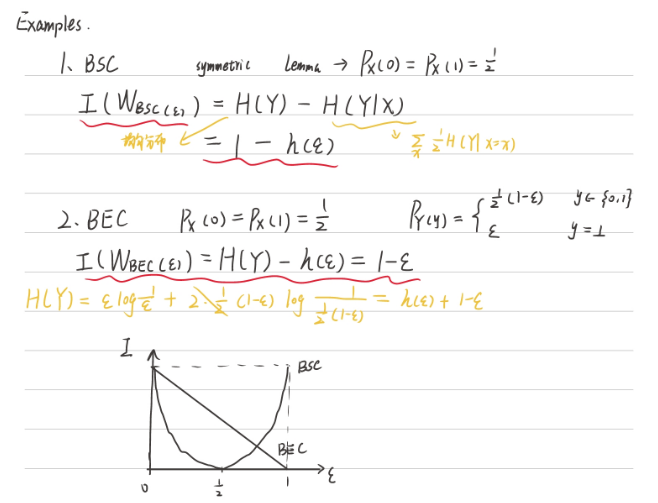 Examples.
1. BSC symmetric lemma → P_X(0) = P_X(1) = 1/2
I(W_BSC(ε)) = H(Y) − H(Y|X)
均匀分布 = 1 − h(ε) ∑_x 1/2 H(Y|X=x)
2. BEC P_X(0) = P_X(1) = 1/2 P_Y(y) = { 1/2(1-ε) y∈{0,1}
ε y=⊥
I(W_BEC(ε)) = H(Y) − h(ε) = 1−ε
H(Y) = ε log 1/ε + 2·1/2 (1-ε) log 1/(1/2(1-ε)) = h(ε) + 1-ε
I
BSC
BEC
0 1/2 1 ε